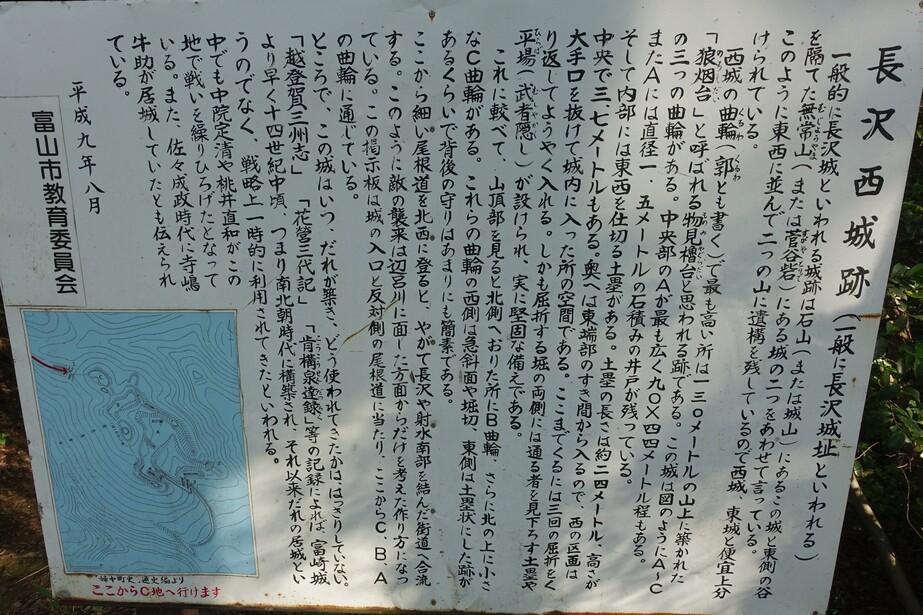 長沢西城跡（一般に長沢城址といわれる）
一般的に長沢城といわれる城跡は石山（または城山）にあるこの城と東側の谷
を隔てた無常山（または菅谷砦）にある城の二つをあわせて言っている。
このように東西に並んで二つの山に遺構を残しているので西城、東城と便宜上分
けられている。
西城の曲輪（郭とも書く）で最も高い所は一三〇メートルの山上に築かれた
「狼烟台」と呼ばれる物見櫓台と思われる跡である。この城は図のようにA〜C
の三つの曲輪がある。中央部のAが最も広く九〇×四四メートル程もある。
またAには直径一、五メートルの石積みの井戸が残っている。
そして内部には東西を仕切る土塁がある。土塁の長さは約二四メートル、高さが
中央で三、七メートルもある。奥へは東端部のすき間から入るので、西の区画は
大手口を抜けて城内に入った所の空間である。ここまでくるには三回の屈折をく
り返してようやく入れる。しかも屈折する堀の両側には通る者を見下ろす土塁や
平場（武者隠し）が設けられ、実に堅固な備えである。
これに較べて、山頂部を見ると北側へおりた所にB曲輪、さらに北の上に小さ
なC曲輪がある。これらの曲輪の西側は急斜面や堀切、東側は土塁状にした跡が
あるくらいで背後の守りはあまりにも簡素である。
ここから細い尾根道を北西に登ると、やがて長沢や射水南部を結んだ街道へ合流
する。このように敵の襲来は辺呂川に面した方面からだけを考えた作り方になっ
ている。この掲示板は城の入口と反対側の尾根道に当たり、ここからC、B、A
の曲輪に通じている。
ところで、この城はいつ、だれが築き、どう使われてきたかははっきりしていない。
「越登賀三州志」「花営三代記」「肯構泉達録」等の記録によれば、富崎城
より早く十四世紀中頃、つまり南北朝時代に構築され、それ以来だれの居城とい
うのでなく、戦略上一時的に利用されてきたといわれる。
中でも中院定清や桃井直和がこの
地で戦いを繰りひろげたとなって
いる。また、佐々成政時代に寺嶋
牛助が居城していたとも伝えられ
ている。
平成九年八月
富山市教育委員会
婦中町史、通史編より
ここからC地へ行けます